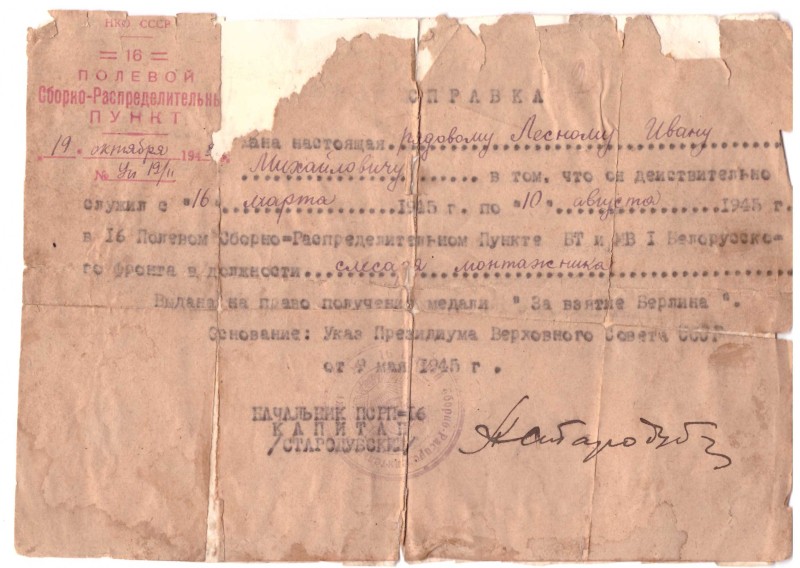 НКО СССР
= 16 =
ПОЛЕВОЙ
Сборно-Распределительн
ПУНКТ
19 октября 194
№
СПРАВКА
дана настоящая рядовому Лесному Ивану
Михайловичу в том, что он действительно
служил с "16" марта 1945 г. по "10" августа 1945 г.
в 16 Полевом Сборно=Распределительном Пункте БТ и МВ I Белорусско=
го фронта в должности слесаря монтажника
Выдана на право получения медали " За взятие Берлина ".
Основание: Указ Президиума Верховного Совета СССР
от 9 мая 1945 г.
НАЧАЛЬНИК ПСРП=16
КАПИТАН
/СТАРОДУБСКИЙ/